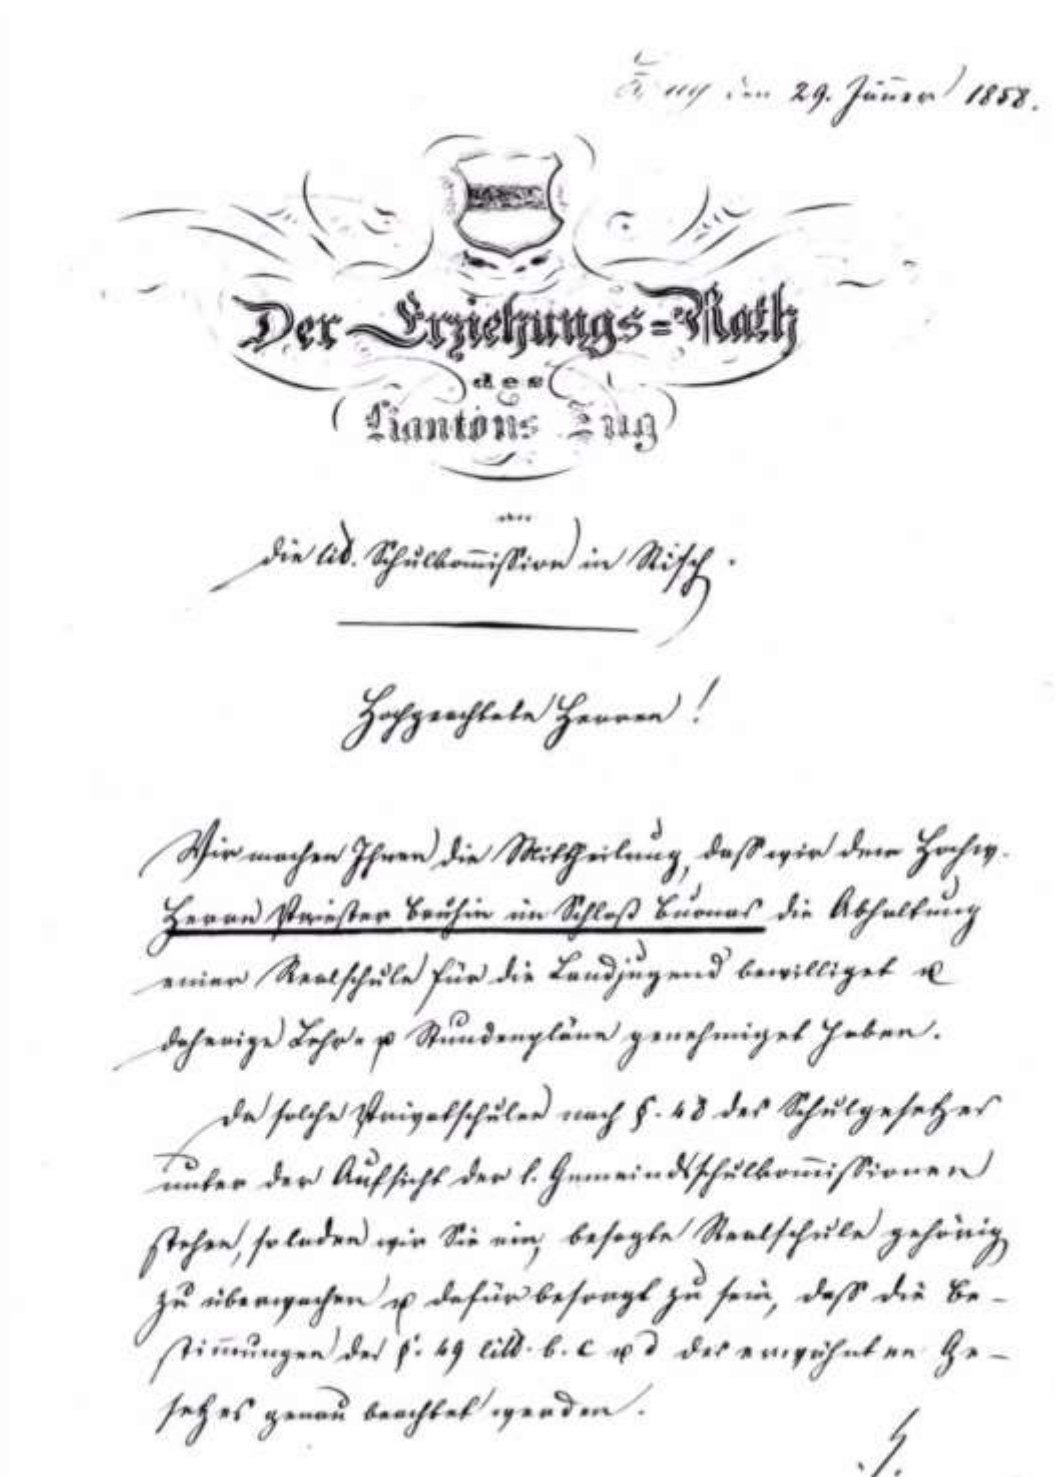 Zug den 29. Jänner 1858.
Der Erziehungs=Rath
des
Kantons Zug
an
die löb. Schulkom̅ission in Risch.
Hochgeachtete Herren!
Wir machen Ihnen die Mittheilung, dass wir dem Hochw.
Herrn Priester Bruhin im Schloß Buonas die Abhaltung
einer Realschule für die Landjugend bewilliget u
daherige Lehr- u Stundenpläne genehmiget haben.
Da solche Privatschulen nach §. 48 des Schulgesetzes
unter der Aufsicht der l. Gemeindsschulkom̅issionen
stehen, so laden wir Sie ein, besagte Realschule gehörig
zu überwachen u dafür besorgt zu sein, dass die Be-
stim̅ungen des §. 49 litt. b. c u d des erwähnten Ge-
setzes genau beachtet werden.